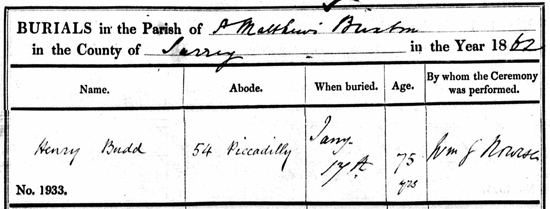 BURIALS in the Parish of St Matthews Brixton
in the County of Surrey in the Year 1862
Name. Abode. When buried. Age. By whom the Ceremony was performed.
Henry Budd 54 Piccadilly Jany 17th 75 yrs Wm G
No. 1933.